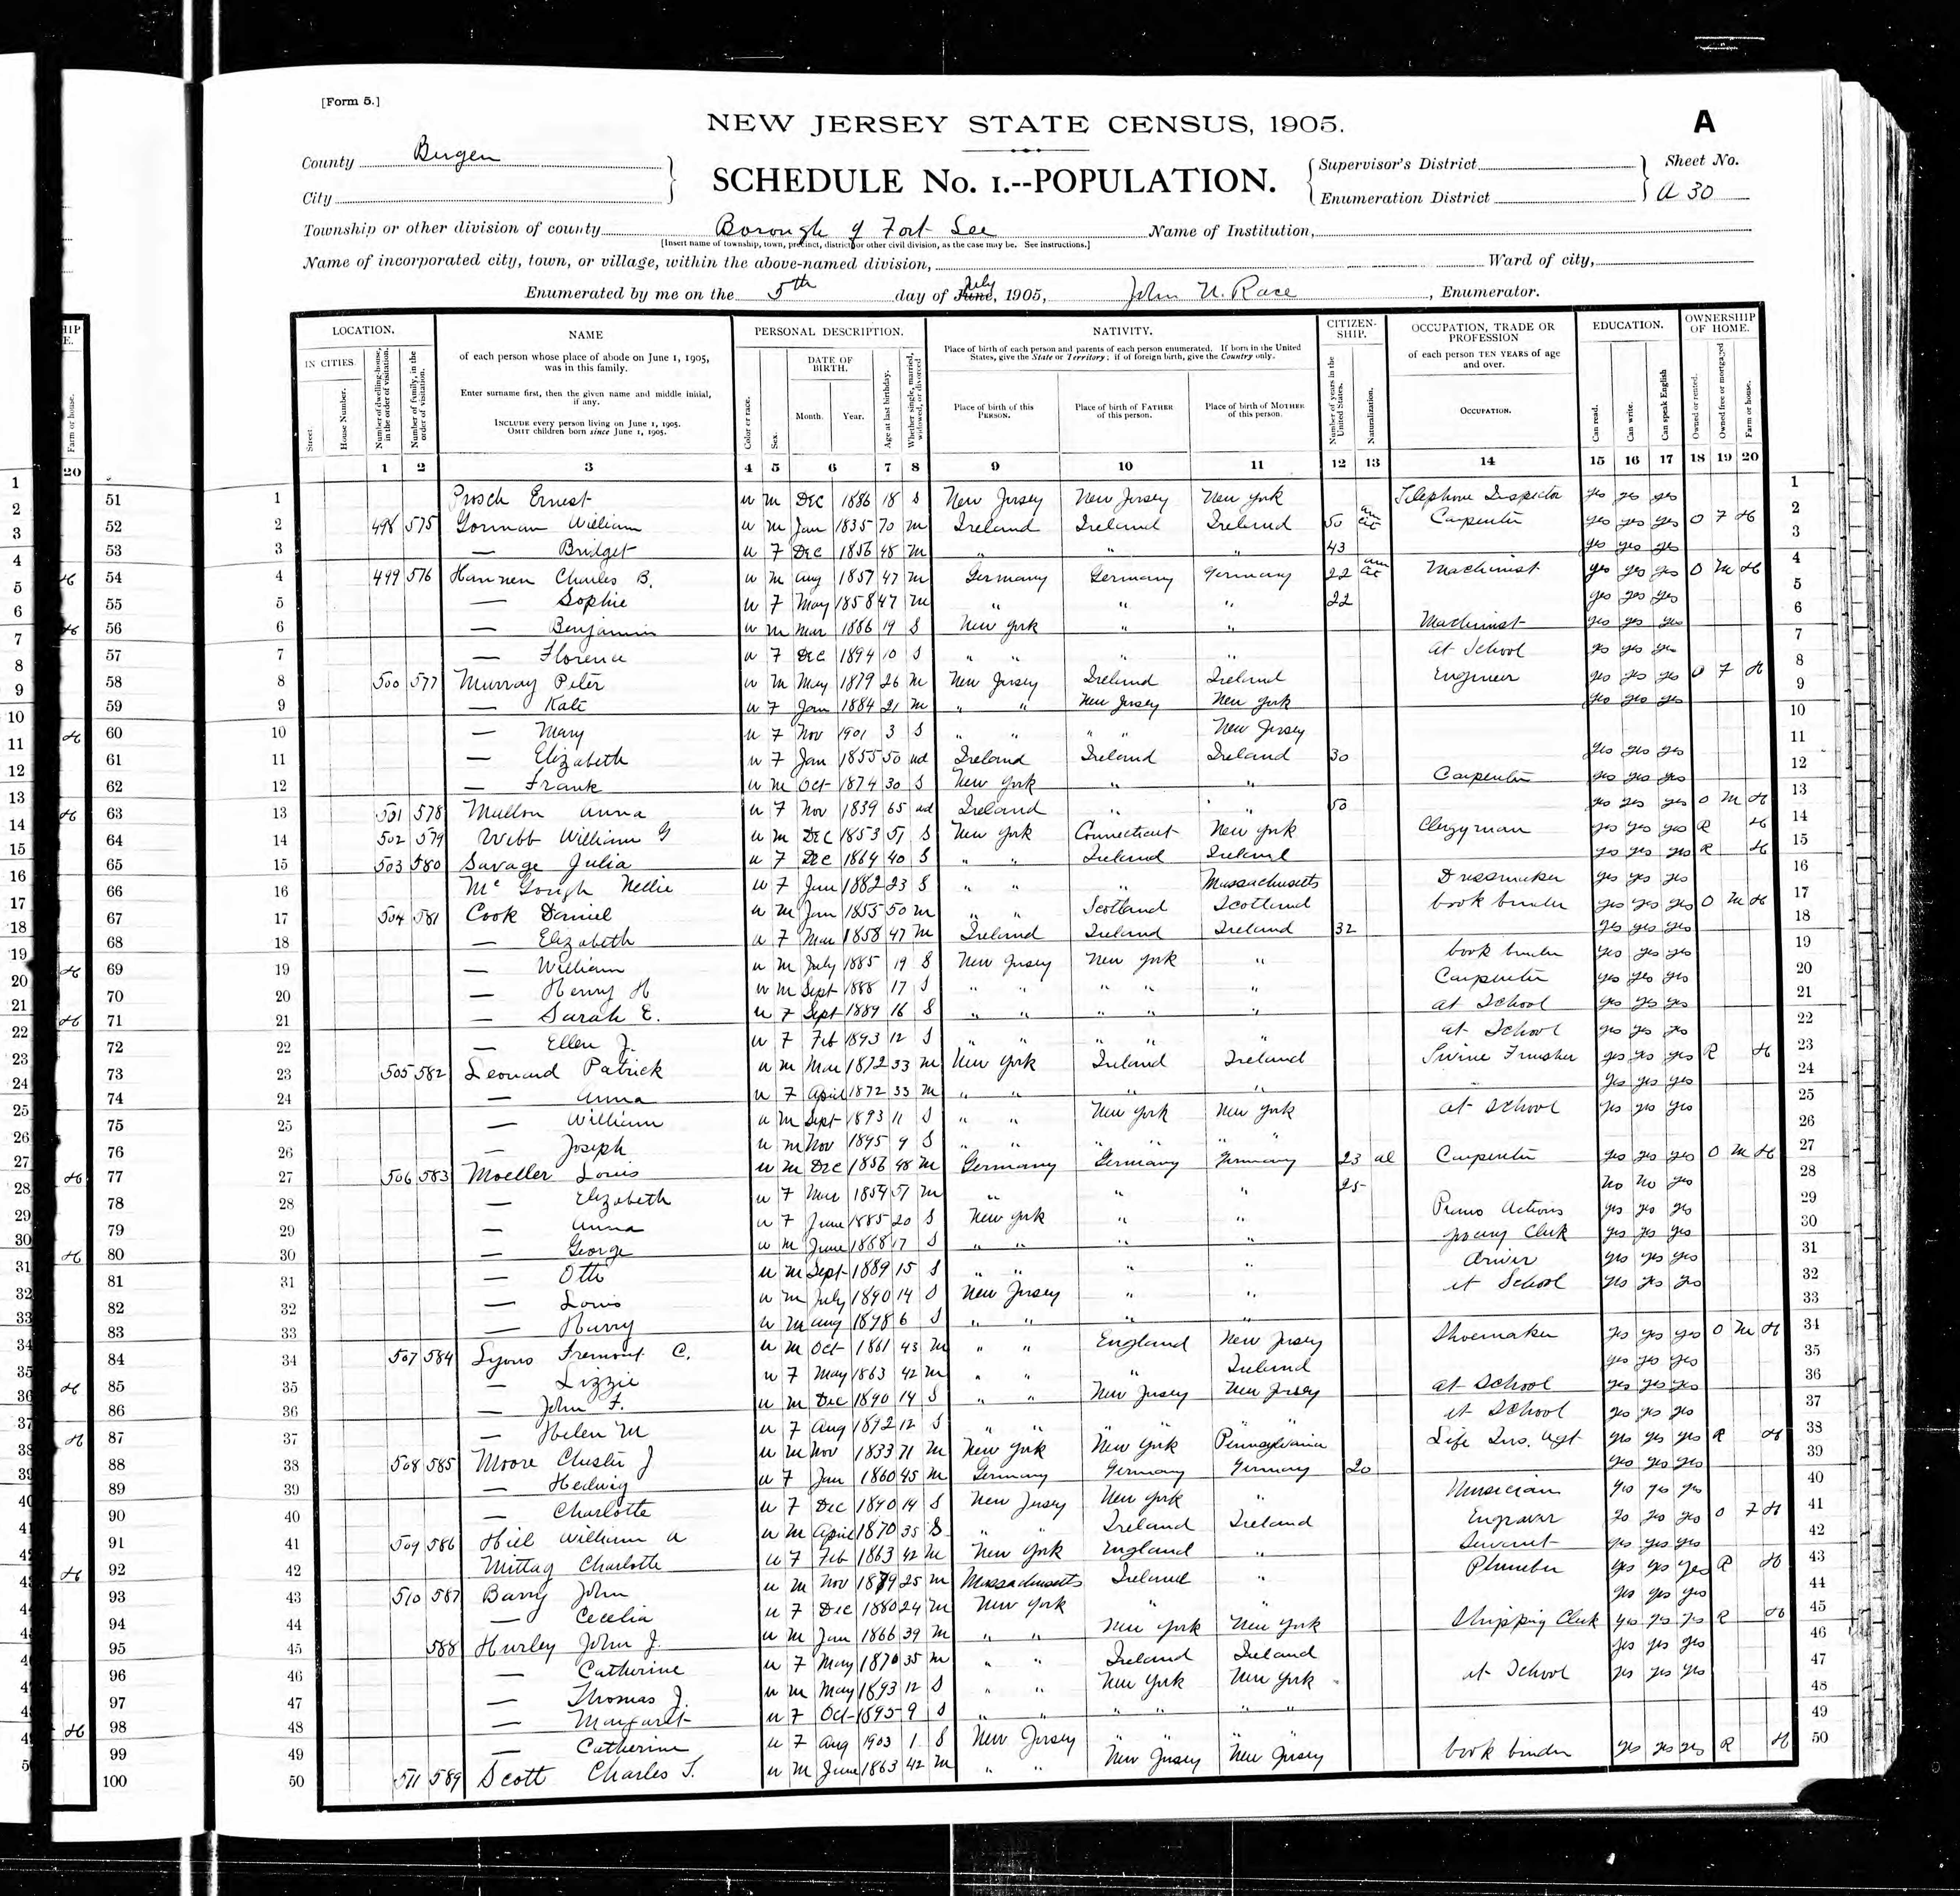 [Form 5.]
NEW JERSEY STATE CENSUS, 1905.
A
County Bergen
City
SCHEDULE No. 1.--POPULATION.
Supervisor's District
Enumeration District
Sheet No.
A 30
Township or other division of county Borough of Fort Lee Name of Institution,
[Insert name of township, town, precinct, district or other civil division, as the case may be. See instructions.]
Name of incorporated city, town, or village, within the above-named division, Ward of city,
Enumerated by me on the 5th day of June, July 1905, John N. Race, Enumerator.
LOCATION. NAME PERSONAL DESCRIPTION. NATIVITY. CITIZEN-SHIP. OCCUPATION, TRADE OR PROFESSION EDUCATION. OWNERSHIP OF HOME.
IN CITIES
Street.
House Number.
Number of dwelling-house, in the order of visitation.
Number of family, in the order of visitation.
of each person whose place of abode on June 1, 1905, was in this family.
Enter surname first, then the given name and middle initial, if any.
INCLUDE every person living on June 1, 1905.
OMIT children born since June 1, 1905.
Color or race.
Sex.
DATE OF BIRTH.
Month. Year.
Age at last birthday.
Whether single, married, widowed, or divorced
Place of birth of each person and parents of each person enumerated. If born in the United States, give the State or Territory; if of foreign birth, give the Country only.
Place of birth of this PERSON.
Place of birth of FATHER of this person.
Place of birth of MOTHER of this person.
Number of years in the United States.
Naturalization.
of each person TEN YEARS of age and over.
OCCUPATION.
Can read.
Can write.
Can speak English
Owned or rented.
Owned free or mortgaged
Farm or house.
1 2 3 4 5 6 7 8 9 10 11 12 13 14 15 16 17 18 19 20
1 Prosch Ernest W M Dec 1886 18 S New Jersey New Jersey New York Telephone Inspector yes yes yes
2 498 575 Gorman William W M Jan 1835 70 M Ireland Ireland Ireland 50 am cit Carpenter yes yes yes O F H
3 — Bridget W F Dec 1856 48 M " " " 43 yes yes yes
4 499 576 Hannen Charles B. W M Aug 1857 47 M Germany Germany Germany 22 am cit Machinist yes yes yes O M H
5 — Sophie W F May 1858 47 M " " " 22 yes yes yes
6 — Benjamin W M Mar 1886 19 S New York " " Machinist yes yes yes
7 — Florence W F Dec 1894 10 S " " " " at School yes yes yes
8 500 577 Murray Peter W M May 1879 26 M New Jersey Ireland Ireland Engineer yes yes yes O F H
9 — Kate W F Jan 1884 21 M " " New Jersey New York yes yes yes
10 — Mary W F Nov 1901 3 S " " " " New Jersey
11 — Elizabeth W F Jan 1855 50 wd Ireland Ireland Ireland 30 yes yes yes
12 — Frank W M Oct 1874 30 S New York " " Carpenter yes yes yes
13 501 578 Mullon Anna W F Nov 1839 65 wd Ireland " " 50 yes yes yes O M H
14 502 579 Webb William G W M Dec 1853 51 S New York Connecticut New York Clergyman yes yes yes R H
15 503 580 Savage Julia W F Dec 1864 40 S " " Ireland Ireland yes yes yes R H
16 Mc Gough Nellie W F Jun 1882 23 S " " " Massachusetts Dressmaker yes yes yes
17 504 581 Cook Daniel W M Jan 1855 50 M " " Scotland Scotland book binder yes yes yes O M H
18 — Elizabeth W F Mar 1858 47 M Ireland Ireland Ireland 32 yes yes yes
19 — William W M July 1885 19 S New Jersey New York " book binder yes yes yes
20 — Henry H W M Sept 1888 17 S " " " " " Carpenter yes yes yes
21 — Sarah E. W F Sept 1889 16 S " " " " " at School yes yes yes
22 — Ellen J. W F Feb 1893 12 S " " " " " at School yes yes yes
23 505 582 Leonard Patrick W M Mar 1872 33 M New York Ireland Ireland yes yes yes R H
24 — Anna W F April 1872 33 M " " " " yes yes yes
25 — William W M Sept 1893 11 S " " New York New York at School yes yes yes
26 — Joseph W M Nov 1895 9 S " " " " " "
27 506 583 Moeller Louis W M Dec 1856 48 M Germany Germany Germany 23 al Carpenter yes yes yes O M H
28 — Elizabeth W F Mar 1854 51 M " " " 25 No No yes
29 — Anna W F June 1885 20 S New York " " Piano Actions yes yes yes
30 — George W M June 1888 17 S " " " " Clerk yes yes yes
31 — Otto W M Sept 1889 15 S " " " " driver yes yes yes
32 — Louis W M July 1890 14 S New Jersey " " at School yes yes yes
33 — Harry W M Aug 1898 6 S " " " "
34 507 584 Lyons Fremont C. W M Oct 1861 43 M " " England New Jersey Shoemaker yes yes yes O M H
35 — Lizzie W F May 1863 42 M " " " Ireland yes yes yes
36 — John F. W M Dec 1890 14 S " " New Jersey New Jersey at School yes yes yes
37 — Helen M W F Aug 1892 12 S " " " " " " at School yes yes yes
38 508 585 Moore Chester J W M Nov 1833 71 M New York New York Pennsylvania Life Ins. Agt yes yes yes R H
39 — Hedwig W F Jan 1860 45 M Germany Germany Germany 20 yes yes yes
40 — Charlotte W F Dec 1890 14 S New Jersey New York " Musician yes yes yes
41 509 586 Hill William A W M April 1870 35 S " " Ireland Ireland Engraver yes yes yes O F H
42 Mittag Charlotte W F Feb 1863 42 M New York England " Servant yes yes yes
43 510 587 Barry John W M Nov 1879 25 M Massachusetts Ireland " Plumber yes yes yes R H
44 — Cecelia W F Dec 1880 24 M New York " " yes yes yes
45 588 Hurley John J. W M Jan 1866 39 M " " New York New York Shipping Clerk yes yes yes R H
46 — Catherine W F May 1870 35 M " " Ireland Ireland yes yes yes
47 — Thomas J. W M May 1893 12 S " " New York New York at School yes yes yes
48 — Margaret W F Oct 1895 9 S " " " " " "
49 — Catherine W F Aug 1903 1 S New Jersey " " " "
50 511 589 Scott Charles T. W M June 1863 42 M " " New Jersey New Jersey book binder yes yes yes R H